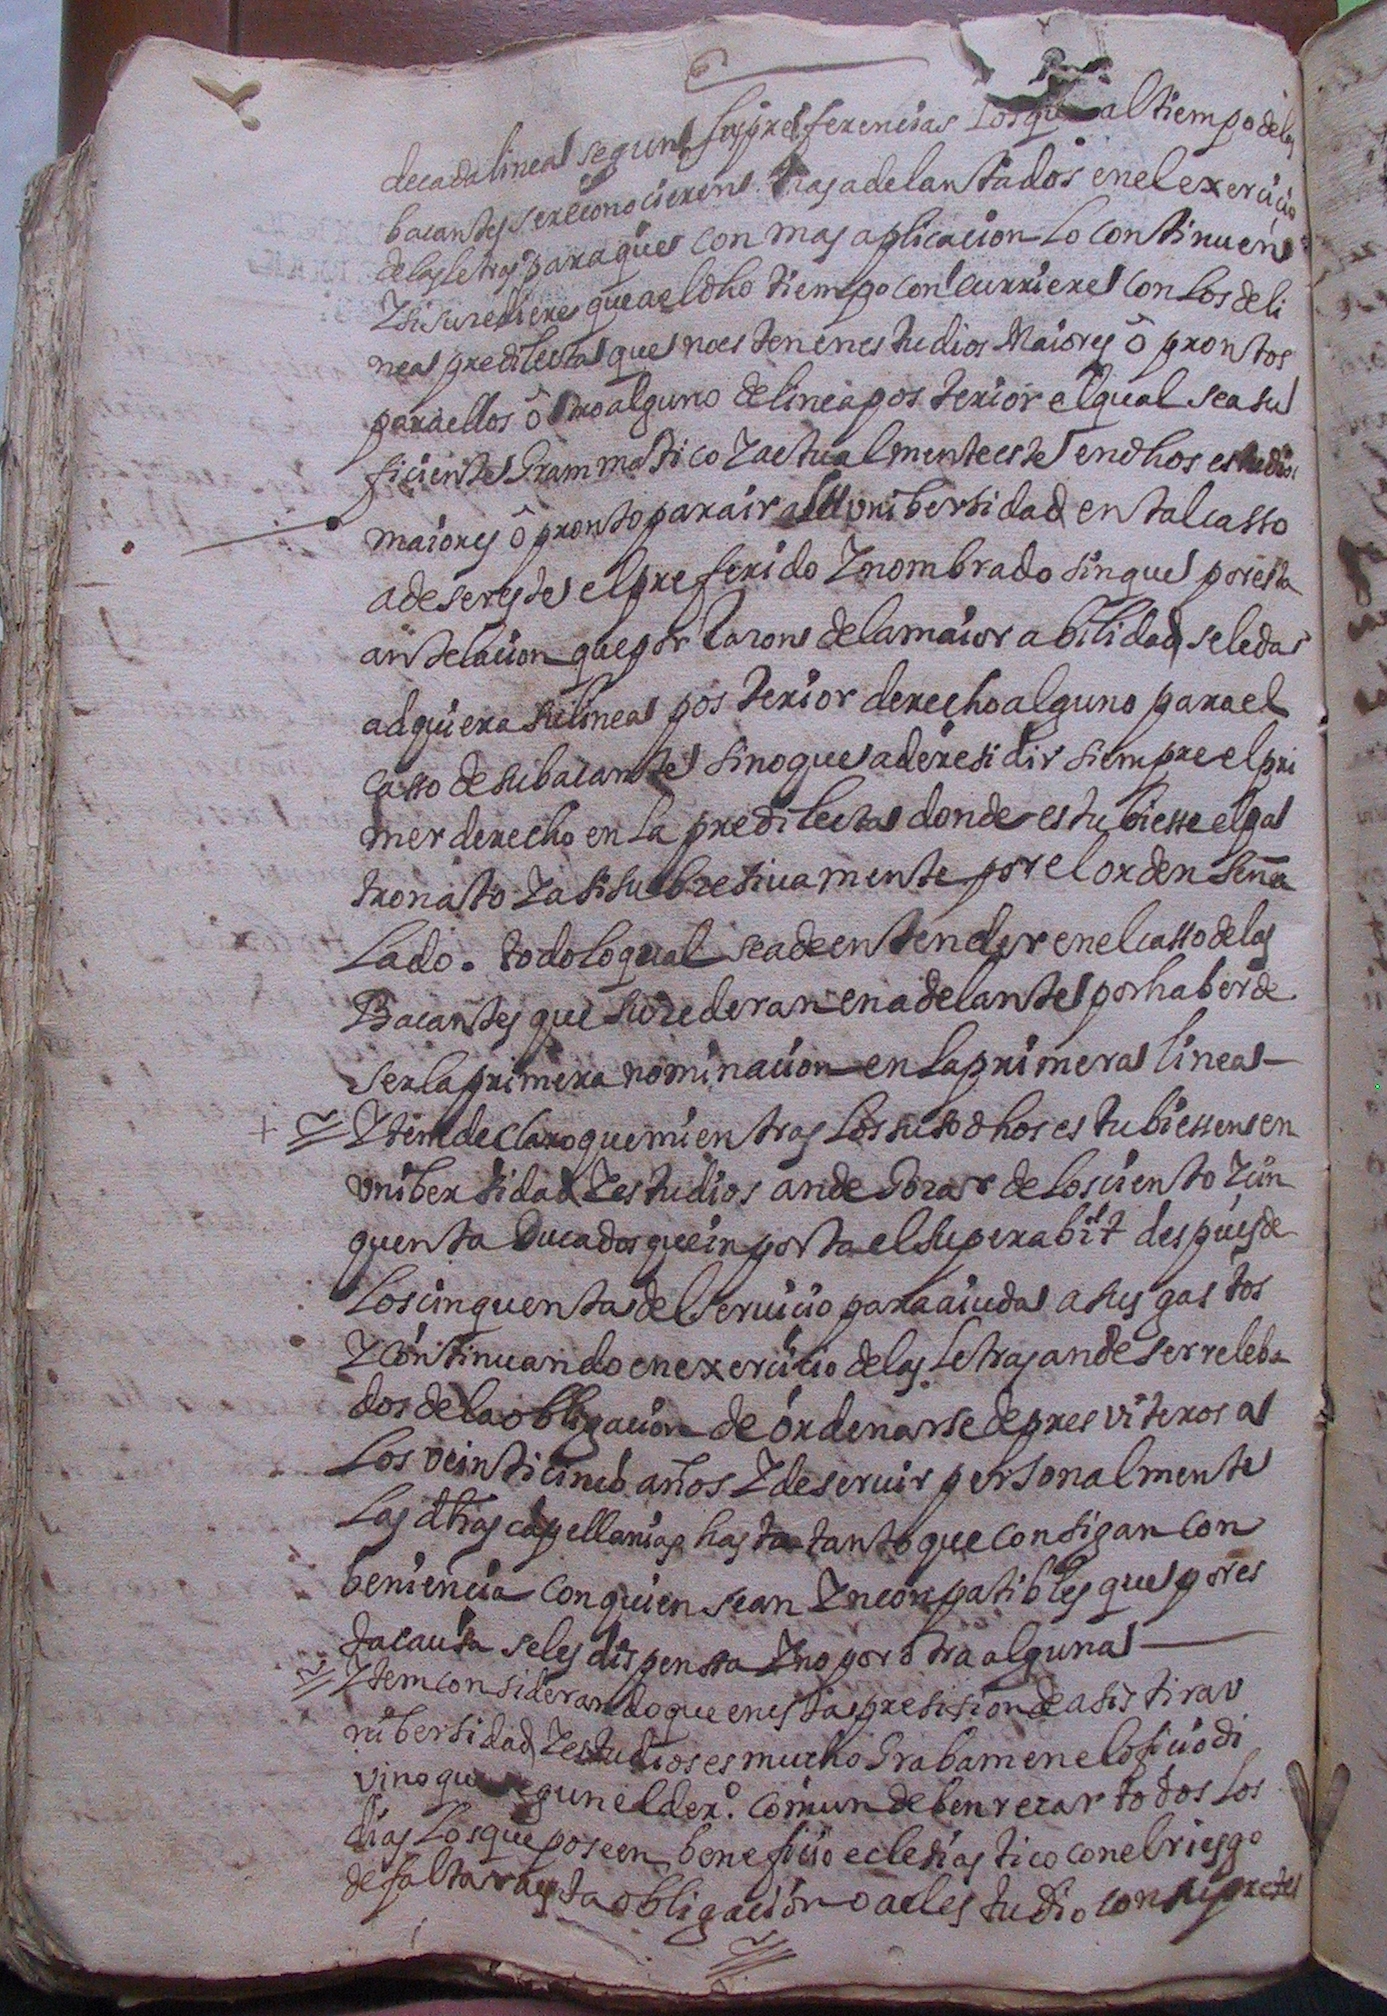 de cada linea segun sus preferencias Los que al tiempo de las
bacantes se reconocieren mas adelantados en el exercicio
de las letras para que con mas aplicacion Lo continuen
Y si sucediere que a el dho tiempo concurriere con Los de li
nea predilecta que no esten en estudios Maiores ô prontos
para ellos ô otro alguno de linea posterior el qual sea su
ficiente Grammatico Y actualmente este en dhos estudios
maiores ô pronto para ir a la unibersidad en tal casso
a de ser este el preferido Y nombrado sin que por esta
antelacion que por Razon de la maior abilidad se le da
adquiera su linea posterior derecho alguno para el
casso de su bacante sino que a de residir siempre el pri
mer derecho en La predilecta donde estubiesse el pa
tronato Y asi subcesivamente por el orden seña
Lado. todo Lo qual se a de entender en el casso de las
Bacantes que sucederan en adelante por haber de
ser la primera nominacion en La primera linea
+ Ytem declaro que mientras Los susodhos estubiessen en
unibersidad Y estudios an de Gozar de Los ciento Y cin
quenta Ducados que inporta el superabit despues de
Los cinquenta del servicio para aiuda a sus gastos
Y continuando en exercicio de las Letras an de ser releba
dos de la obligacion de ordenarse de presviteros a
Los veinticinco años Y de servir personalmente
Las dhas capellanias hasta tanto que consigan con
beniencia con quien sean Yncompatibles que por es
ta causa se les dispensa Y no por otra alguna
Ytem considerando que en esta presision de asistir a v
nibersidad Y estudios es mucho Grabamen el oficio di
vino que segun el dero. comun deben rezar todos Los
dias Los que poseen beneficio eclesiastico con el riesgo
de faltar a esta obligacion o a el estudio con su pretes